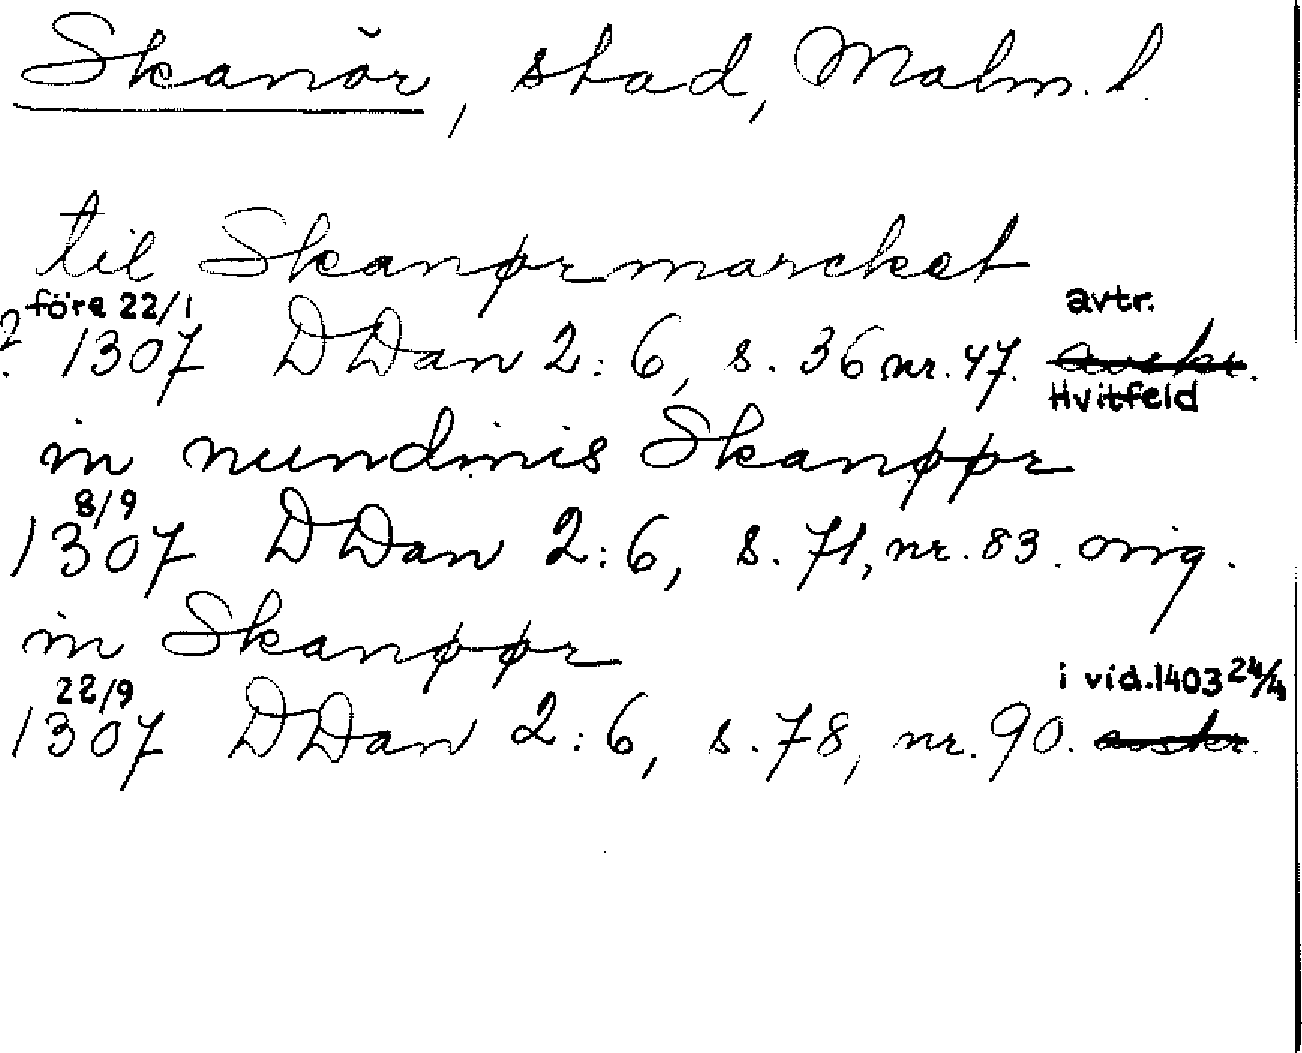 Skanör, stad, Malm. l.
til Skanørmarcket
före 22/1 avtr.
? 1307 DDan 2:6, s. 36 nr. 47.
Hvitfeld
in nundinis Skanøør
8/9
1307 DDan 2:6, s. 71, nr. 83. orig.
in Skanøør
22/9 i vid. 1403 24/4
1307 DDan 2:6, s. 78, nr. 90.